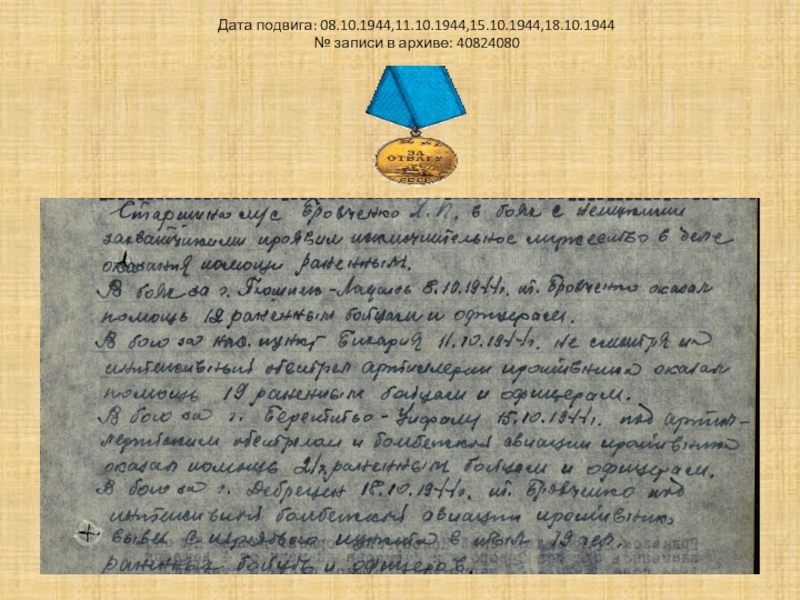 Дата подвига: 08.10.1944,11.10.1944,15.10.1944,18.10.1944
№ записи в архиве: 40824080
ЗА
ОТВАГУ
СССР
Старшина м/с Бровченко П. в боях с немецкими
захватчиками проявил исключительное мужество в деле
оказания помощи раненным.
В боях за г. 8.10.1944г. т. Бровченко оказал
помощь 12 раненным бойцам и офицерам.
В бою за нас. пункт Бихария 11.10.1944г. не смотря на
интенсивный обстрел артиллерии противника оказал
помощь 19 раненным бойцам и офицерам.
В бою за г. Береттьо-Уифалу 15.10.1944г. под артил-
лерийским обстрелом и бомбежкой авиации противника
оказал помощь раненным бойцам и офицерам.
В бою за г. Дебрецен 18.10.1944г. т. Бровченко под
интенсивной бомбежкой авиации противника
вывез с пункта в тыл 19 чел.
раненных бойцов и офицеров.